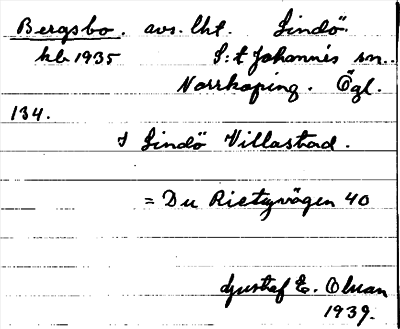 Bergsbo. avs. lht. Lindö.
kb 1935 S:t Johannis sn.
Norrköping. Ögl.
134.
I Lindö Villastad.
= Du Rietzvägen 40
Gustaf E. Olman
1939.